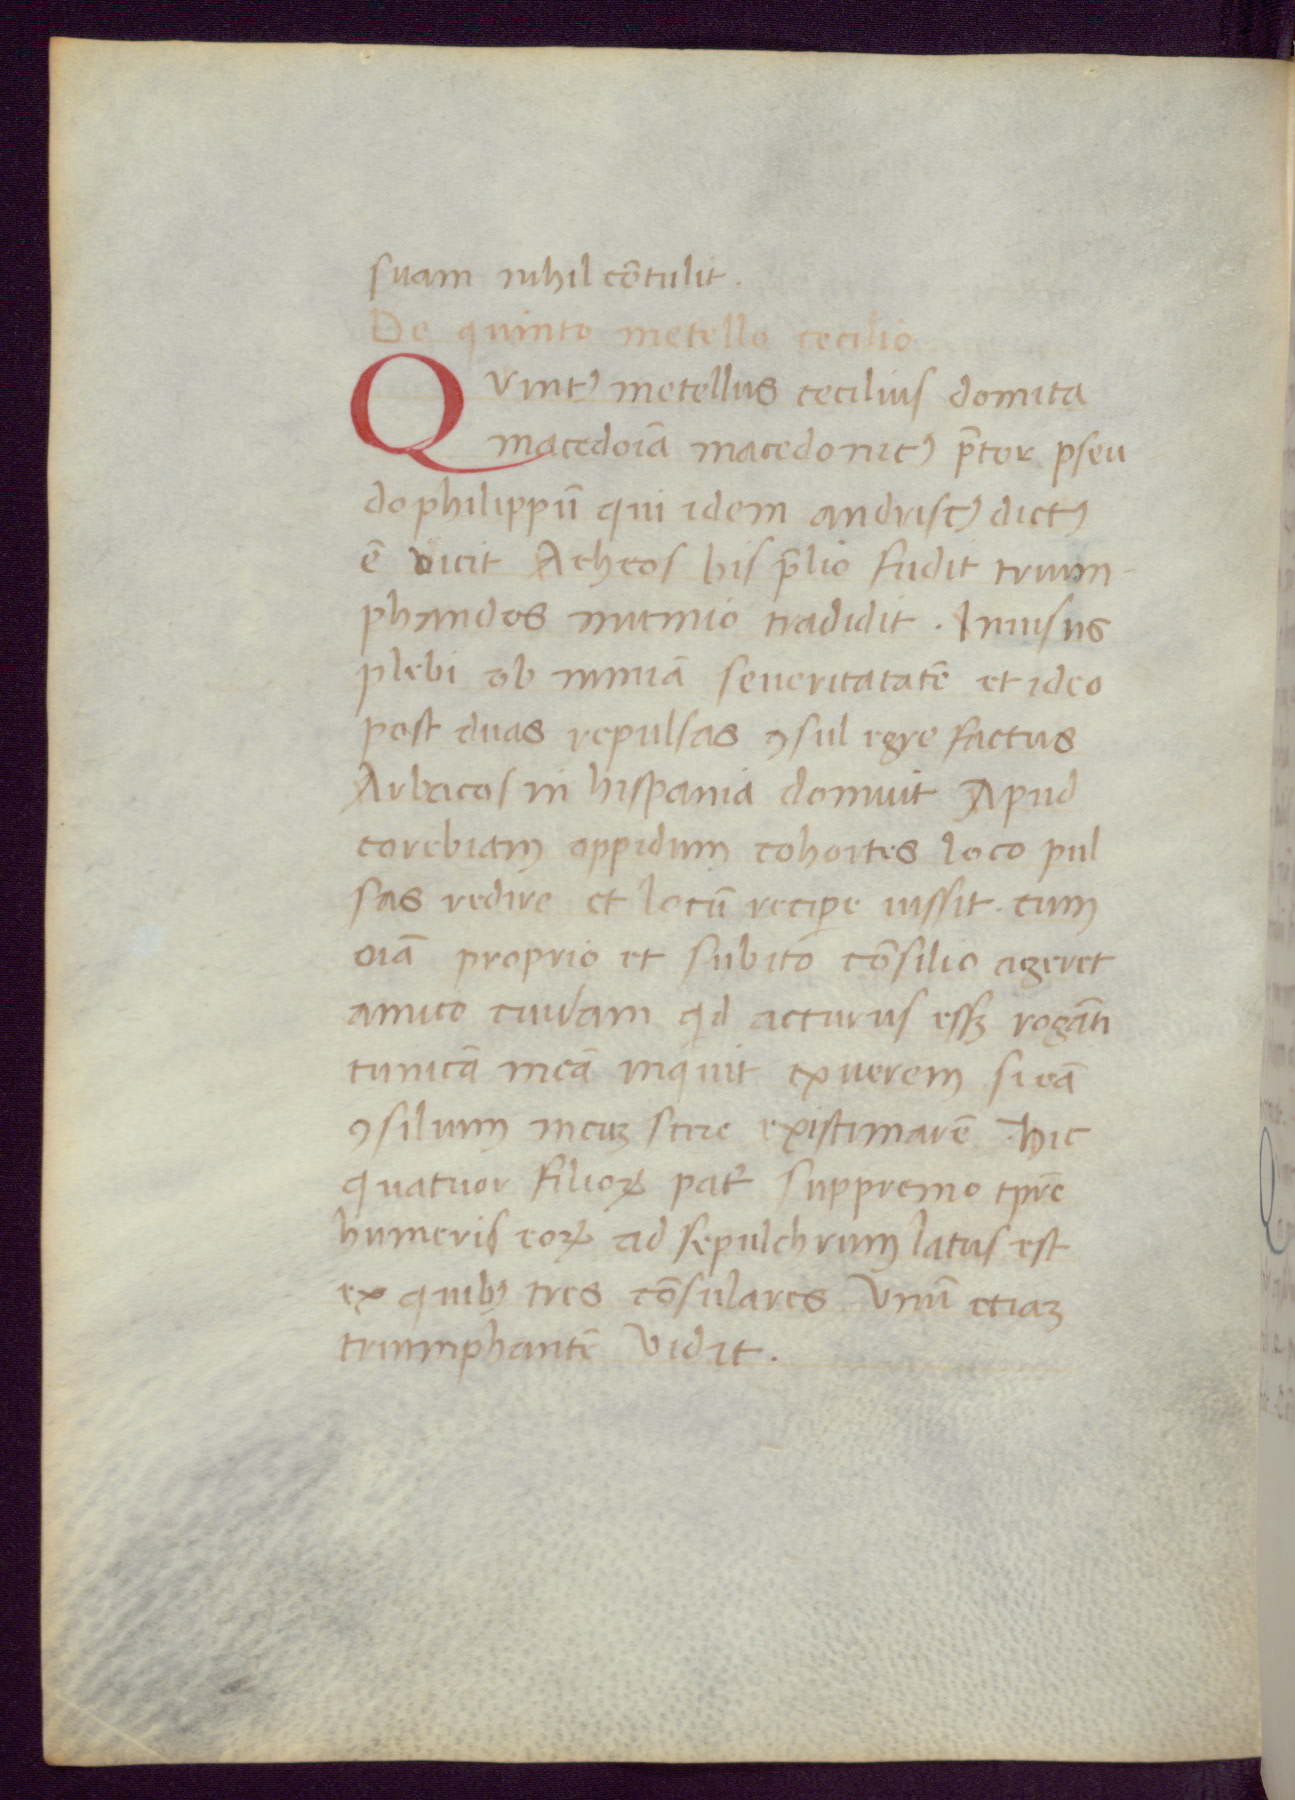 suam nihil cōtulit.
De quinto metello cecilio
Qvintꝰ metellus cecilius domita
macedoīa macedonicꝰ p̄tor pseu
dophilippū qui idem andriscꝰ dictꝰ
ē vicit Acheos bis p̄lio fudit trium-
phandos mumio tradidit. Inuisus
plebi ob nimiā seueritatatē et ideo
post duas repulsas ꝯsul egre factus
Arbacos in hispania domuit Apud
corebiam oppidum cohortes loco pul
sas redire et locū reciꝑe iussit. cum
oīa proprio et subito cōsilio ageret
amico cuidam qd acturus essꝫ rogāti
tunicā meā inquit exuerem si eā
ꝯsilium meuꝫ scire existimarē. hic
quatuor filioꝝ pat̄ suppremo tpr̄e
humeris eoꝝ ad sepulchrum latus est
ex quibꝰ tres cōsulares Vnū etiaꝫ
triumphantē vidit.